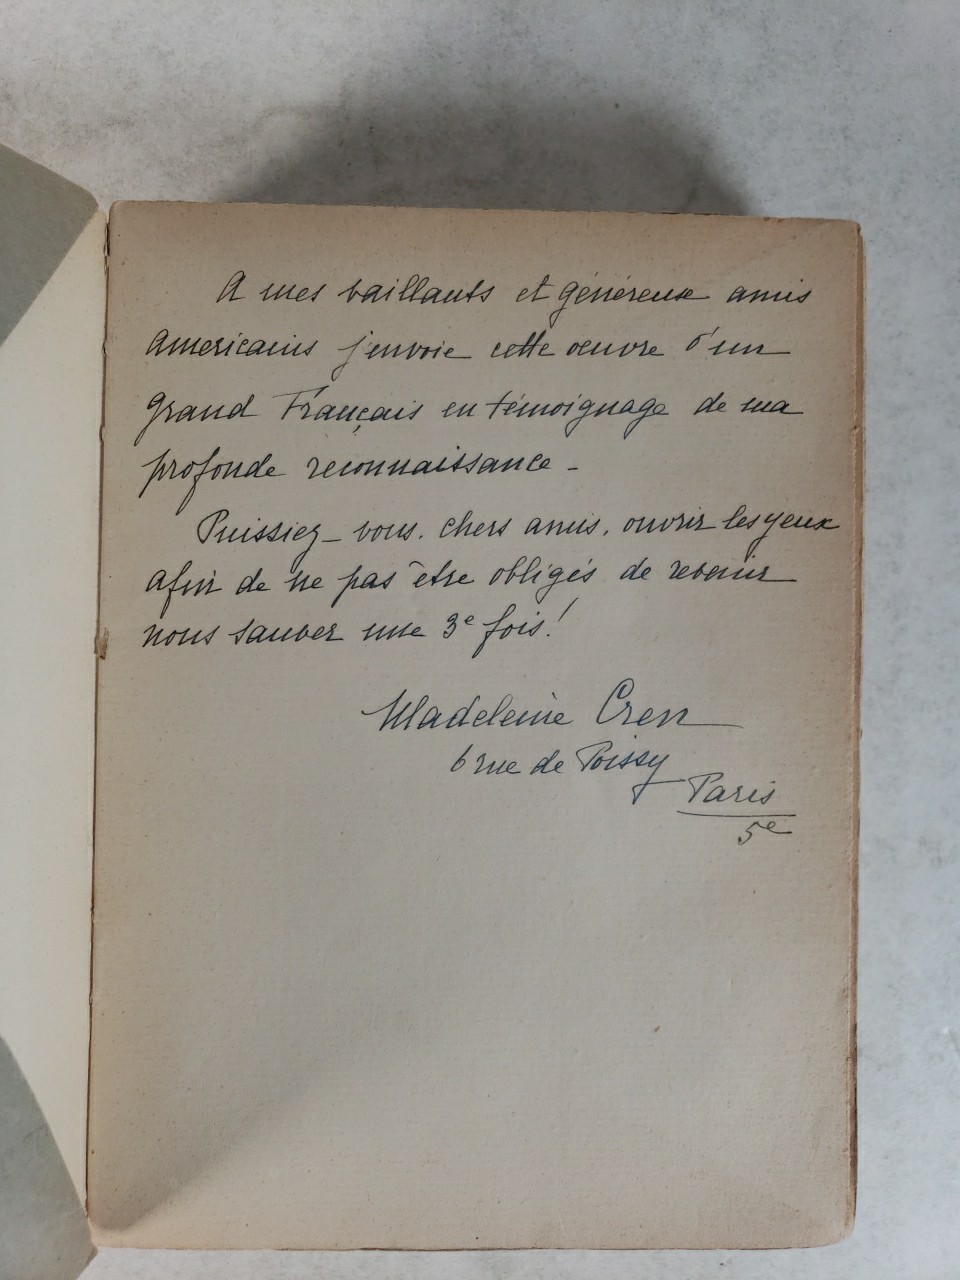 A mes vaillants et généreux amis
Américains j'envoie cette oeuvre d'un
grand Français en témoignage de ma
profonde reconnaissance -
Puissiez-vous, chers amis, ouvrir les yeux
afin de ne pas être obligés de revenir
nous sauver une 3e fois!
Madeleine Cren
6 rue de Poissy
Paris
5e